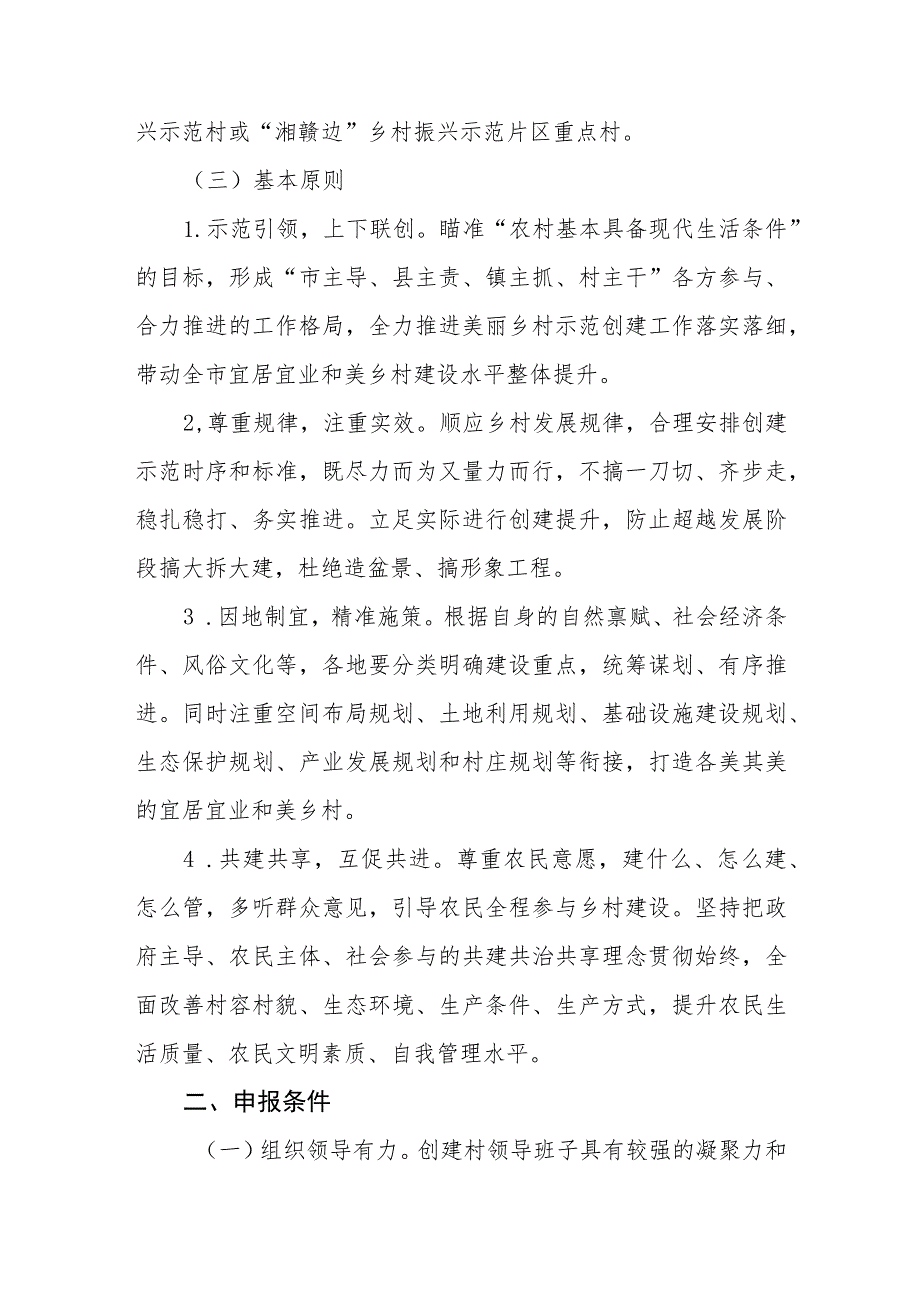 兴示范村或“湘赣边”乡村振兴示范片区重点村。
（三）基本原则
1.示范引领，上下联创。瞄准“农村基本具备现代生活条件”
的目标，形成“市主导、县主责、镇主抓、村主干”各方参与、
合力推进的工作格局，全力推进美丽乡村示范创建工作落实落细，
带动全市宜居宜业和美乡村建设水平整体提升。
2,尊重规律，注重实效。顺应乡村发展规律，合理安排创建
示范时序和标准，既尽力而为又量力而行，不搞一刀切、齐步走，
稳扎稳打、务实推进。立足实际进行创建提升，防止超越发展阶
段搞大拆大建，杜绝造盆景、搞形象工程。
3 .因地制宜，精准施策。根据自身的自然禀赋、社会经济条
件、风俗文化等，各地要分类明确建设重点，统筹谋划、有序推
进。同时注重空间布局规划、土地利用规划、基础设施建设规划、
生态保护规划、产业发展规划和村庄规划等衔接，打造各美其美
的宜居宜业和美乡村。
4 .共建共享，互促共进。尊重农民意愿，建什么、怎么建、
怎么管，多听群众意见，引导农民全程参与乡村建设。坚持把政
府主导、农民主体、社会参与的共建共治共享理念贯彻始终，全
面改善村容村貌、生态环境、生产条件、生产方式，提升农民生
活质量、农民文明素质、自我管理水平。
二、申报条件
（一）组织领导有力。创建村领导班子具有较强的凝聚力和